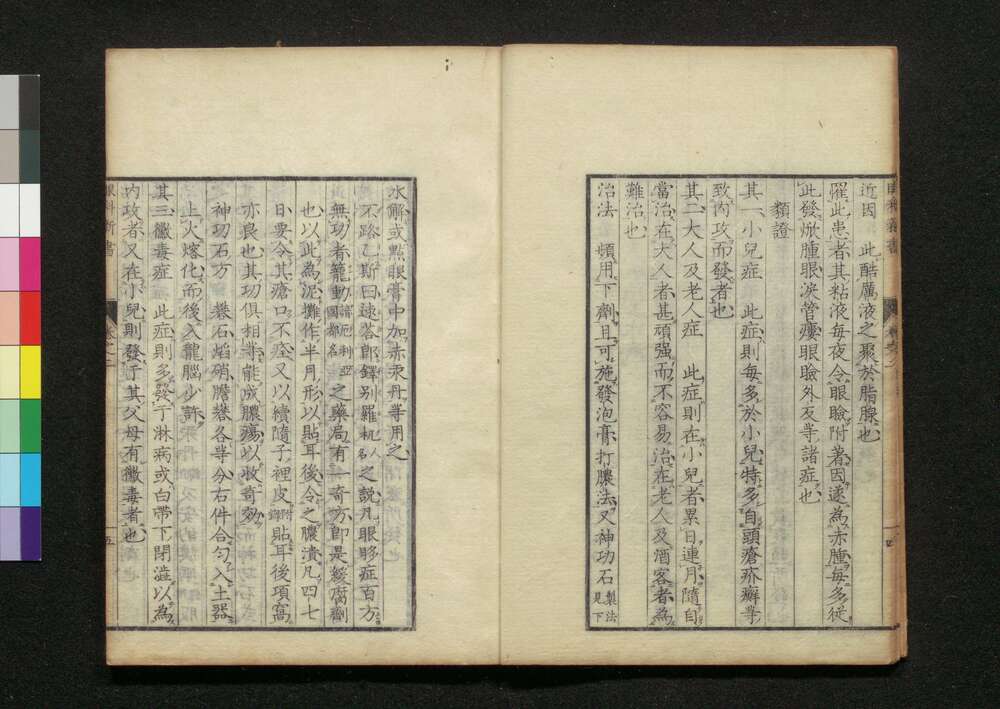 近因 此酷厲液之聚於脂腺也
罹此患者其粘液每夜令眼瞼附著因遂為赤腫每多從
此發焮腫眼淚管瘻眼瞼外反等諸症也
類證
其一小兒症 此症則每多於小兒特多自頭瘡疥癬等
致內攻而發者也
其二大人及老人症 此症則在小兒者累日連月隨自
當治在大人者甚頑强而不容易治在老人及酒客者為
難治也
治法 頻用下劑且可施發泡膏打膿法又神功石製法見下
水解或點眼膏中加赤汞丹等用之
不路乙斯曰速答郎鐸別羅机人名之說凡眼眵症百方
無功者籠動諳厄利亞國都名之藥局有一奇方即是緩腐劑
也以此為泥攤作半月形以貼耳後令之膿潰凡四七
日要令其瘡口不痊又以續隨子裡皮貼耳後項窩
亦良也其功俱相等能成膿瘍以收奇効
神功石方 礬石焰硝膽礬各等分右件合勻入土器
上火熔化而後入龍腦少許
其三黴毒症 此症則多發于淋病或白帶下閉澁以為
內攻者又在小兒則發于其父母有黴毒者也
眼科新書
五